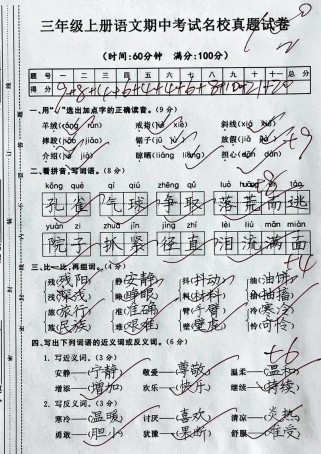 三年级上册语文期中考试名校真题试卷
(时间:60分钟 满分:100分)
题号 一 二 三 四 五 六 七 八 九 十 十一 总分
得分
一、用"√"选出加点字的正确读音。(9分)
羊绒( rún) 戒指( xié) 斜线( xié)
摔跤( jiāo) 锯子( jù) 放假(jiǎ )
介绍( jiè) 晾晒(liàng liāng) 担心(dān dàn)
二、看拼音,写词语。(8分)
kǒng què qì qiú zhēng qǔ luò huāng táo
孔雀 气球 争取 落荒而逃
yuàn zi zhuā jǐn jìng zhí lèi liú mǎn miàn
院子 抓紧 径直 泪流满面
三、比一比,再组词。(4分)
残(残阳) 静(安静) 抖(抖动) 油(油饼)
浅(深浅) 睁(睁眼) 料(材料) 抽(抽搐)
旅(旅行) 准(准确) 臂(手臂) 冷(寒冷)
族(民族) 难(艰难) 壁(壁虎) 怜(可怜)
四、写出下列词语的近义词或反义词。(6分)
1. 写近义词。(3分)
安静——(宁静) 敬爱——(尊敬) 温柔——(温和)
增添——(增加) 欢乐——(快乐) 继续——(持续)
2. 写反义词。(3分)
寒冷——(温暖) 讨厌——(喜欢) 清凉——(炎热)
勇敢——(胆小) 犹豫——(果断) 舒服——(难受)